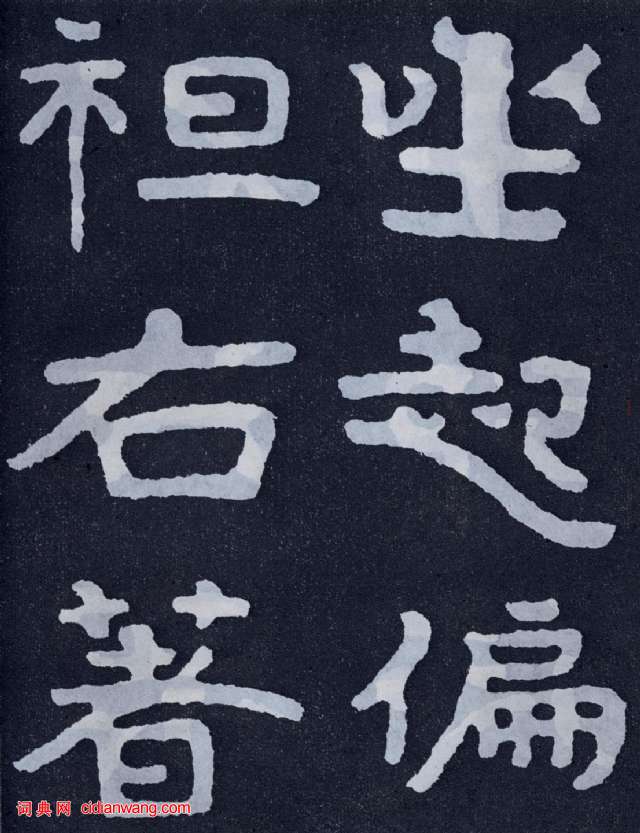 坐起偏
袒右著
词典网 cidianwang.com